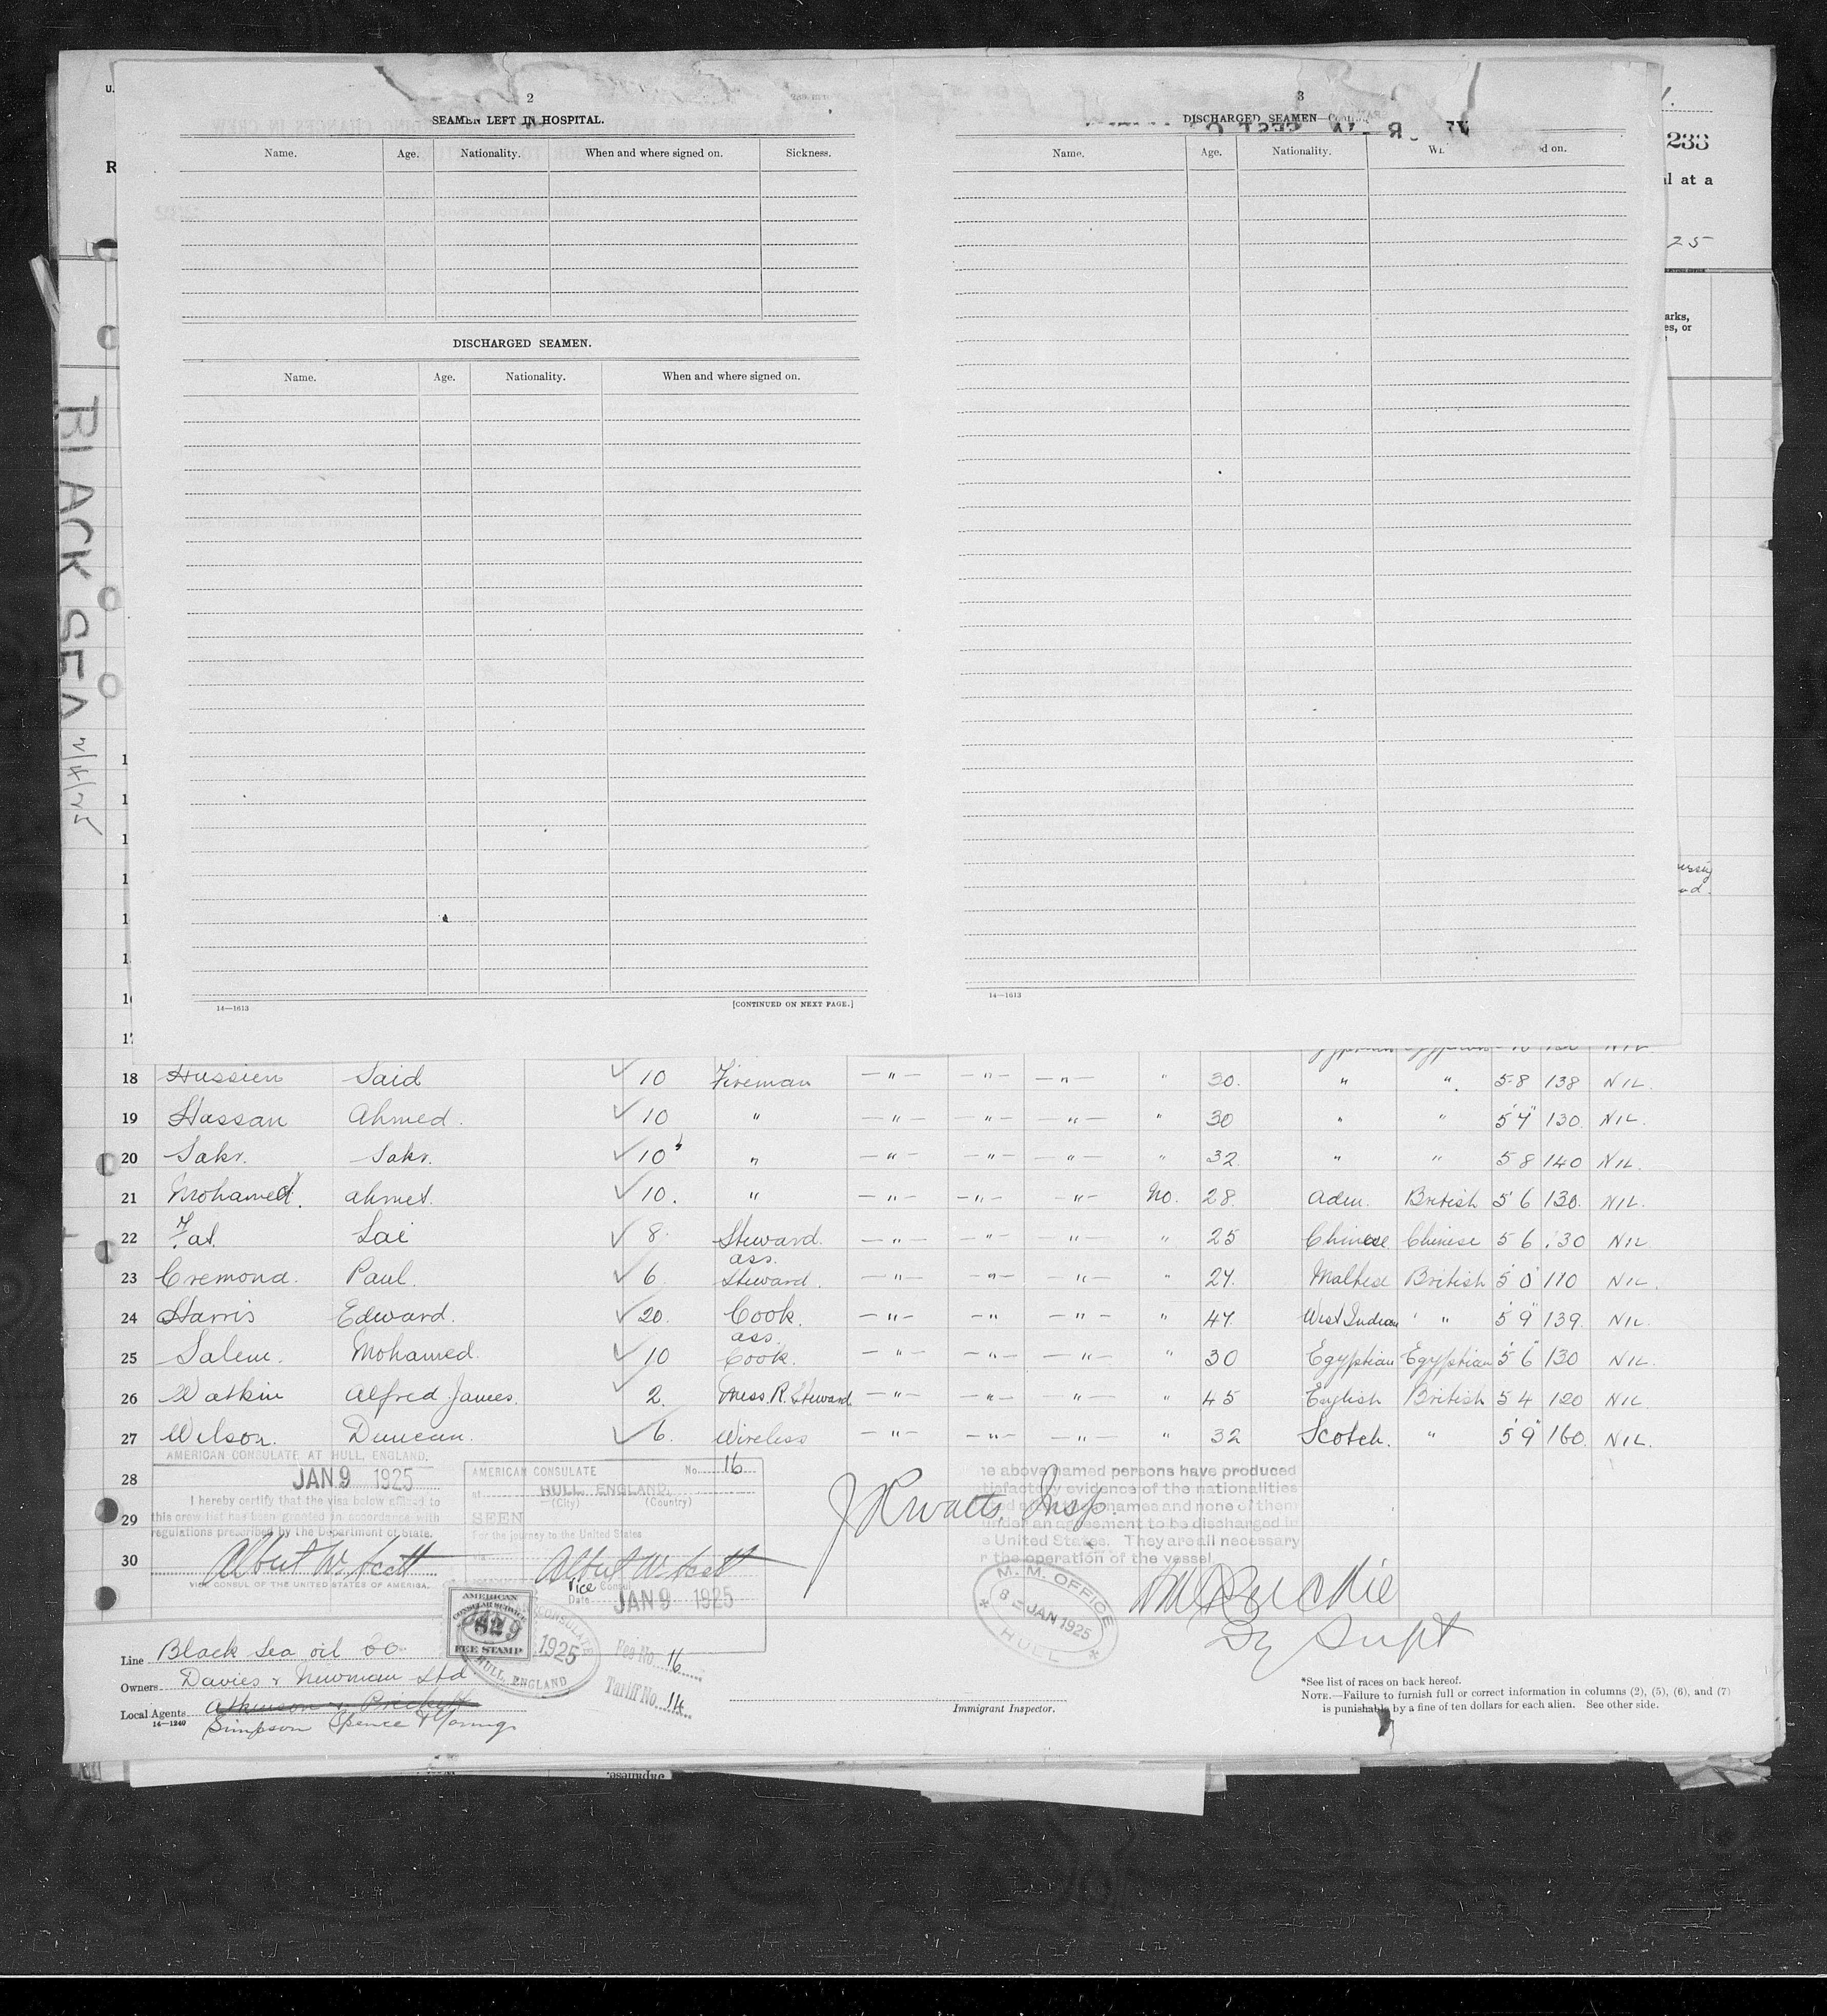 U.
R
233
al at a
25
arks,
es, or
2
SEAMEN LEFT IN HOSPITAL.
Name. Age. Nationality. When and where signed on. Sickness.
DISCHARGED SEAMEN.
Name. Age. Nationality. When and where signed on.
14—1613 [CONTINUED ON NEXT PAGE.]
3
DISCHARGED SEAMEN
Name. Age. Nationality. d on.
14—1613
BLACK SEA 2/4/25
18 Hussien Said ✓ 10 Fireman —"— —"— —"— " 30. " " 5-8 138 NIL.
19 Hassan Ahmed. ✓ 10 " —"— —"— —"— " 30 " " 5'4" 130. NIL.
20 Sakr. Sakr. ✓ 10 " —"— —"— —"— " 32. " " 5 8 140 NIL.
21 Mohamed. ahmet. ✓ 10. " —"— —"— —"— No. 28. Aden. British 5' 6 130. NIL.
22 Lai ✓ 8. Steward. —"— —"— —"— " 25 Chinese Chinese 5 6 130 NIL.
23 Cremona. Paul. ✓ 6. ass. Steward. —"— —"— —"— " 27. Maltese British 5' 0" 110 NIL.
24 Harris Edward. ✓ 20. Cook. —"— —"— —"— " 47. West Indian " 5' 9" 139. NIL.
25 Salem. Mohamed. ✓ 10 ass. Cook. —"— —"— —"— " 30 Egyptian Egyptian 5' 6" 130 NIL.
26 Watkin Alfred James. ✓ 2. Mess. R. Steward —"— —"— —"— " 45 English British 5 4 120 NIL.
27 Wilson. Duncan. ✓ 6. Wireless —"— —"— —"— " 32 Scotch. " 5' 9" 160. NIL.
28
29
30
AMERICAN CONSULATE AT HULL, ENGLAND.
JAN 9 1925
I hereby certify that the visa below affixed to
this crew list has been granted in accordance with
regulations prescribed by the Department of State.
Albert W. Scott
VICE CONSUL OF THE UNITED STATES OF AMERICA.
AMERICAN CONSULATE No. 16
at HULL, ENGLAND.
(City) (Country)
SEEN
For the journey to the United States
via
Albert W. Scott
Vice Consul
Date JAN 9 1925
AMERICAN
CONSULAR SERVICE
FEE STAMP
1925
HULL, ENGLAND
Fee No. 16
Tariff No. 14
J R Watts, Insp.
he above named persons have produced
tisfactory evidence of the nationalities
names and none of them
under an agreement to be discharged in
e United States. They are all necessary
r the operation of the vessel
M. M. OFFICE
8 – JAN 1925
HULL
Dy Supt
Line Black Sea oil Co.
Owners Davies & Newman Ltd
Local Agents Atkinson & Prickett
Simpson Spence & Young
14—1240
Immigrant Inspector.
*See list of races on back hereof.
NOTE.—Failure to furnish full or correct information in columns (2), (5), (6), and (7)
is punishable by a fine of ten dollars for each alien. See other side.